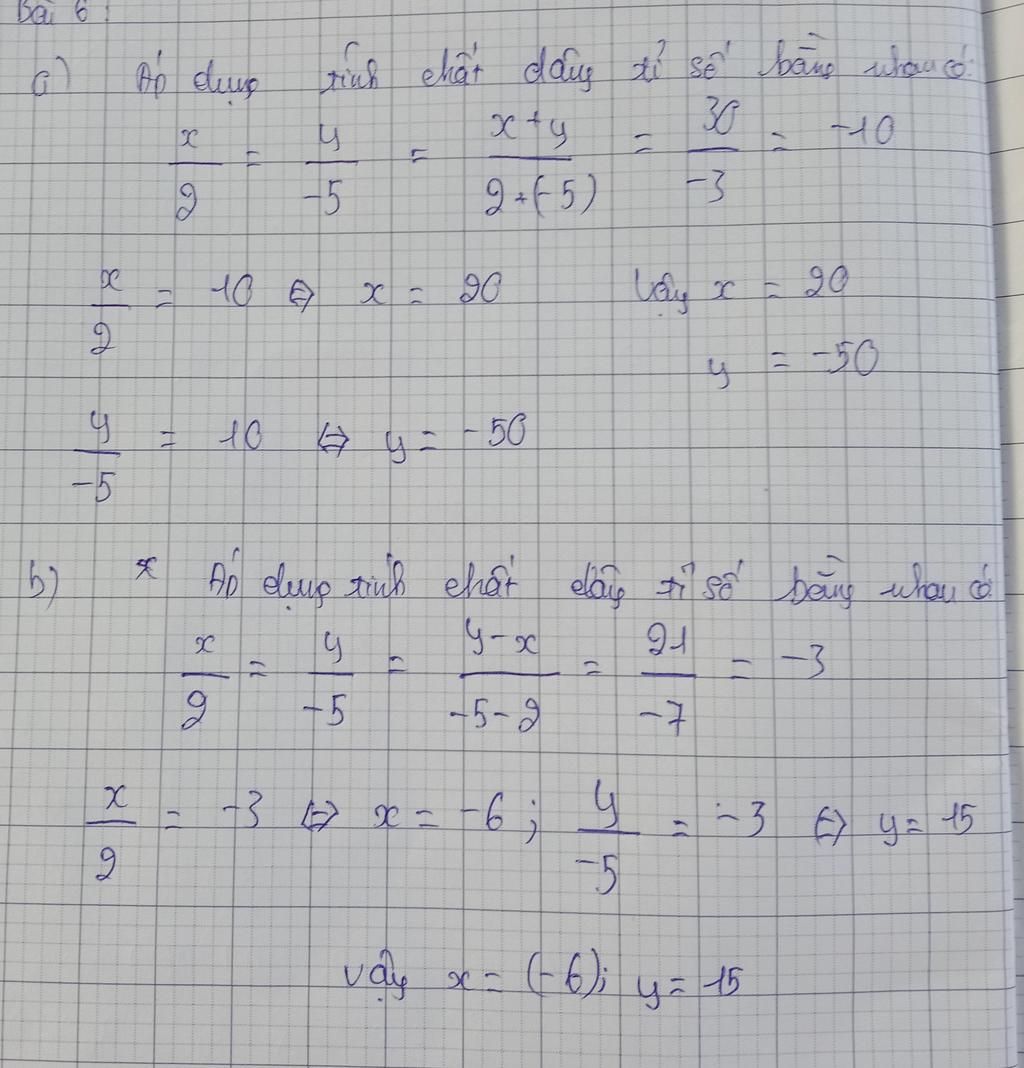 Bài 6:
a) Áp dụng tính chất dãy tỉ số bằng nhau có:
x/2 = y/-5 = x+y/2+(-5) = 30/-3 = -10
x/2 = 10 ⇔ x = 20 Vậy x = 20
y = -50
y/-5 = 10 ⇔ y = -50
b) * Áp dụng tính chất dãy tỉ số bằng nhau có
x/2 = y/-5 = y-x/-5-2 = 21/-7 = -3
x/2 = -3 ⇔ x = -6; y/-5 = -3 ⇔ y = 15
vậy x = (-6); y = 15